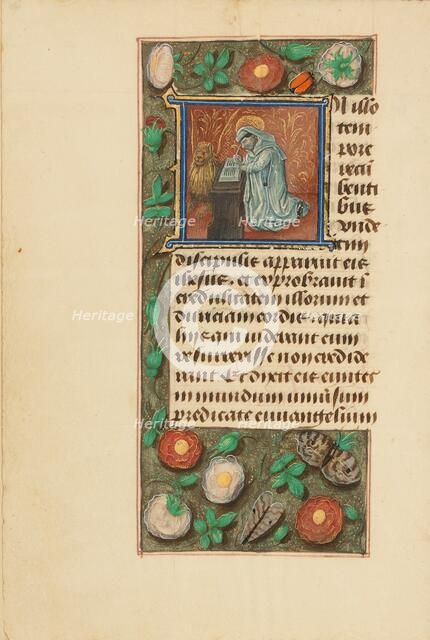 N illo
tem
pore
recū
benti
bus
unde
cim
discipulis apparuit eis
ihesus. et exprobravit ī
credulitatem illorum et
duriciam cordis. quia
hiis qui viderant eum
resurrexisse non credide
rant Et dixit eis euntes
in mundum universum
predicate euuangelium
Heritage
Heritage
Heritage
Heritage
Heritage
Heritage